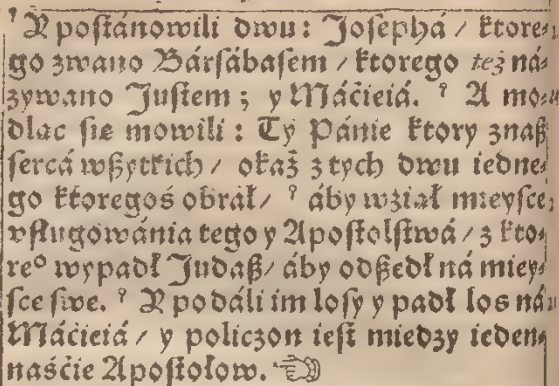 ² Y poſtánowili dwu: Joſephá / ktore⸗
go zwano Bárſábaſem / ktorego też ná⸗
zywano Juſtem; y Máćieiá. ² A mo⸗
dlac ſie mowili: Ty Pánie ktory znaß
ſercá wßytkich / okaż z tych dwu iedne⸗
go ktoregoś obrał / ² áby wziął mieyſce
vſługowánia tego y Apoſtolſtwá / z kto⸗
reº wypadł Judaß / áby odßedł ná miey⸗
ſce ſwe. ² Y podáli im loſy y padł los ná
Máćieiá / y policzon ieſt miedzy ieden⸗
naśćie Apoſtołow. ☜